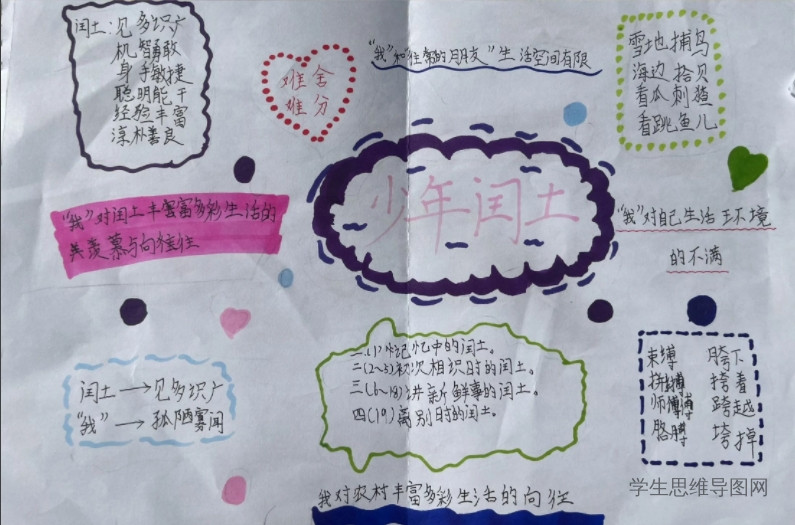 闰土:见多识广
机智勇敢
身手敏捷
聪明能干
经验丰富
淳朴善良
难舍
难分
"我"和"往常的朋友"生活空间有限
雪地捕鸟
海边拾贝
看瓜刺猹
看跳鱼儿
少年闰土
"我"对闰土丰富多彩生活的
羡慕与向往
"我"对自己生活环境
的不满
闰土→见多识广
"我"→孤陋寡闻
一(1)忆记忆中的闰土。
二(2~5)初次相识时的闰土。
三(6~18)讲新鲜事的闰土。
四(19)离别时的闰土。
束缚 胯下
挎着
师傅 跨越
胳膊 垮掉
我对农村丰富多彩生活的向往
学生思维导图网